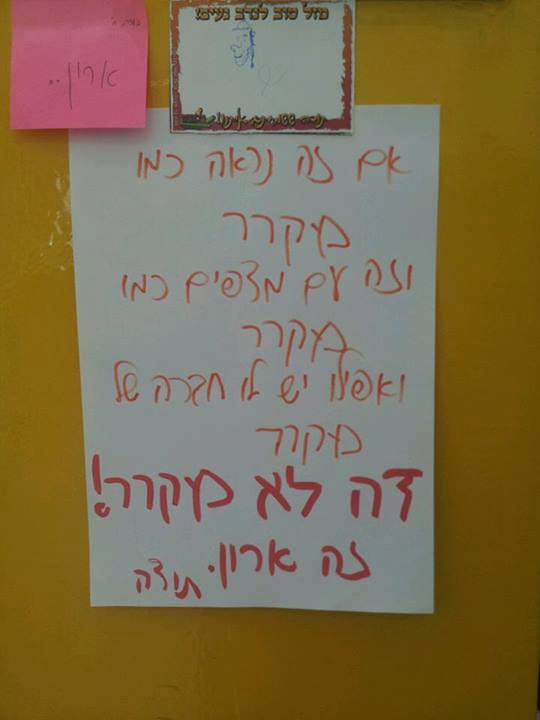 ארון..
מזל טוב לנדב נעים!
אם זה נראה כמו
מקרר
וזה עם מצפים כמו
מקרר
ואפילו יש לו חברה של
מקרר
זה לא מקרר!
זה ארון. תודה